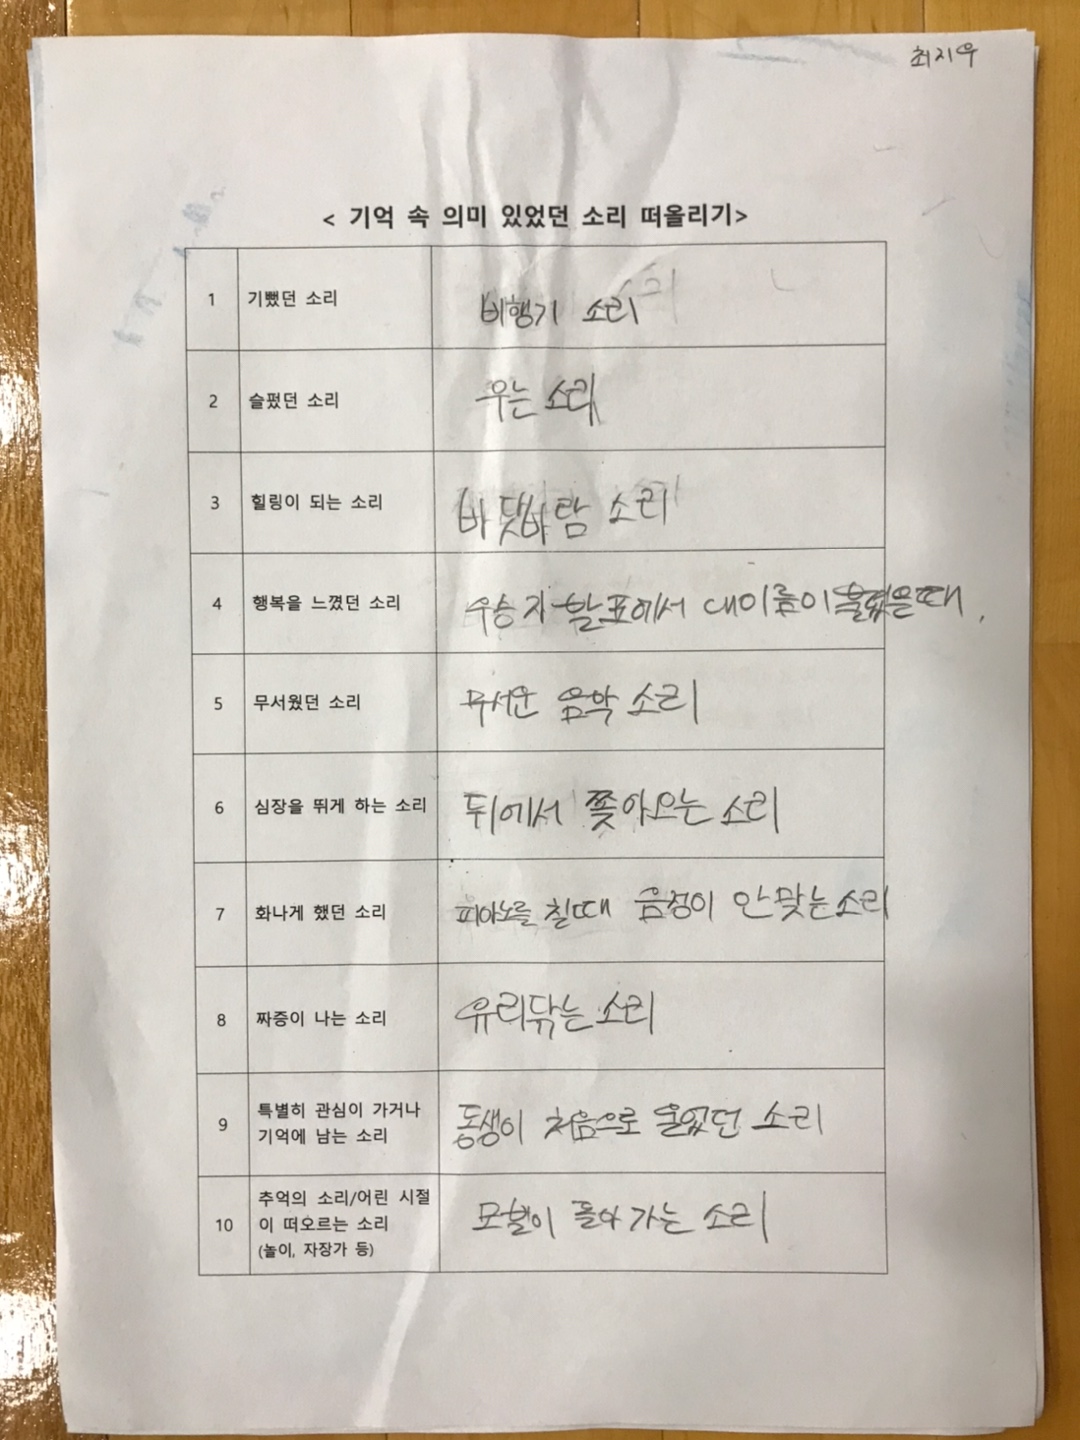 최지우
< 기억 속 의미 있었던 소리 떠올리기>
1 기뻤던 소리 비행기 소리
2 슬펐던 소리 우는 소리
3 힐링이 되는 소리 바닷바람 소리
4 행복을 느꼈던 소리 우승자 발표에서 내이름이 울렸을때.
5 무서웠던 소리 무서운 음악 소리
6 심장을 뛰게 하는 소리 뒤에서 쫓아오는 소리
7 화나게 했던 소리 피아노를 칠때 음정이 안맞는소리
8 짜증이 나는 소리 유리닦는 소리
9 특별히 관심이 가거나
기억에 남는 소리 동생이 처음으로 울었던 소리
10 추억의 소리/어린 시절
이 떠오르는 소리
(놀이, 자장가 등) 모빌이 돌아가는 소리